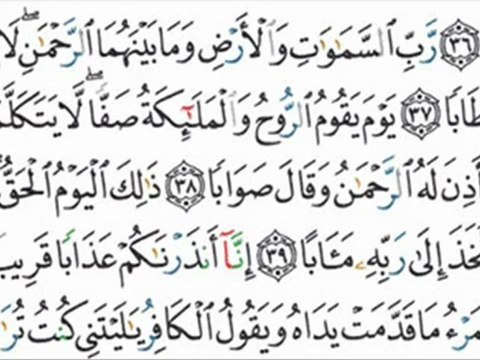 ٣٦ رَّبِّ ٱلسَّمَٰوَٰتِ وَٱلْأَرْضِ وَمَا بَيْنَهُمَا ٱلرَّحْمَٰنِ ۖ لَا
طَابًا ٣٧ يَوْمَ يَقُومُ ٱلرُّوحُ وَٱلْمَلَٰٓئِكَةُ صَفًّا ۖ لَّا يَتَكَلَّمُ
أَذِنَ لَهُ ٱلرَّحْمَٰنُ وَقَالَ صَوَابًا ٣٨ ذَٰلِكَ ٱلْيَوْمُ ٱلْحَقُّ
تَّخَذَ إِلَىٰ رَبِّهِۦ مَـَٔابًا ٣٩ إِنَّآ أَنذَرْنَٰكُمْ عَذَابًا قَرِيبً
مَرْءُ مَا قَدَّمَتْ يَدَاهُ وَيَقُولُ ٱلْكَافِرُ يَٰلَيْتَنِى كُنتُ تُرَٰ